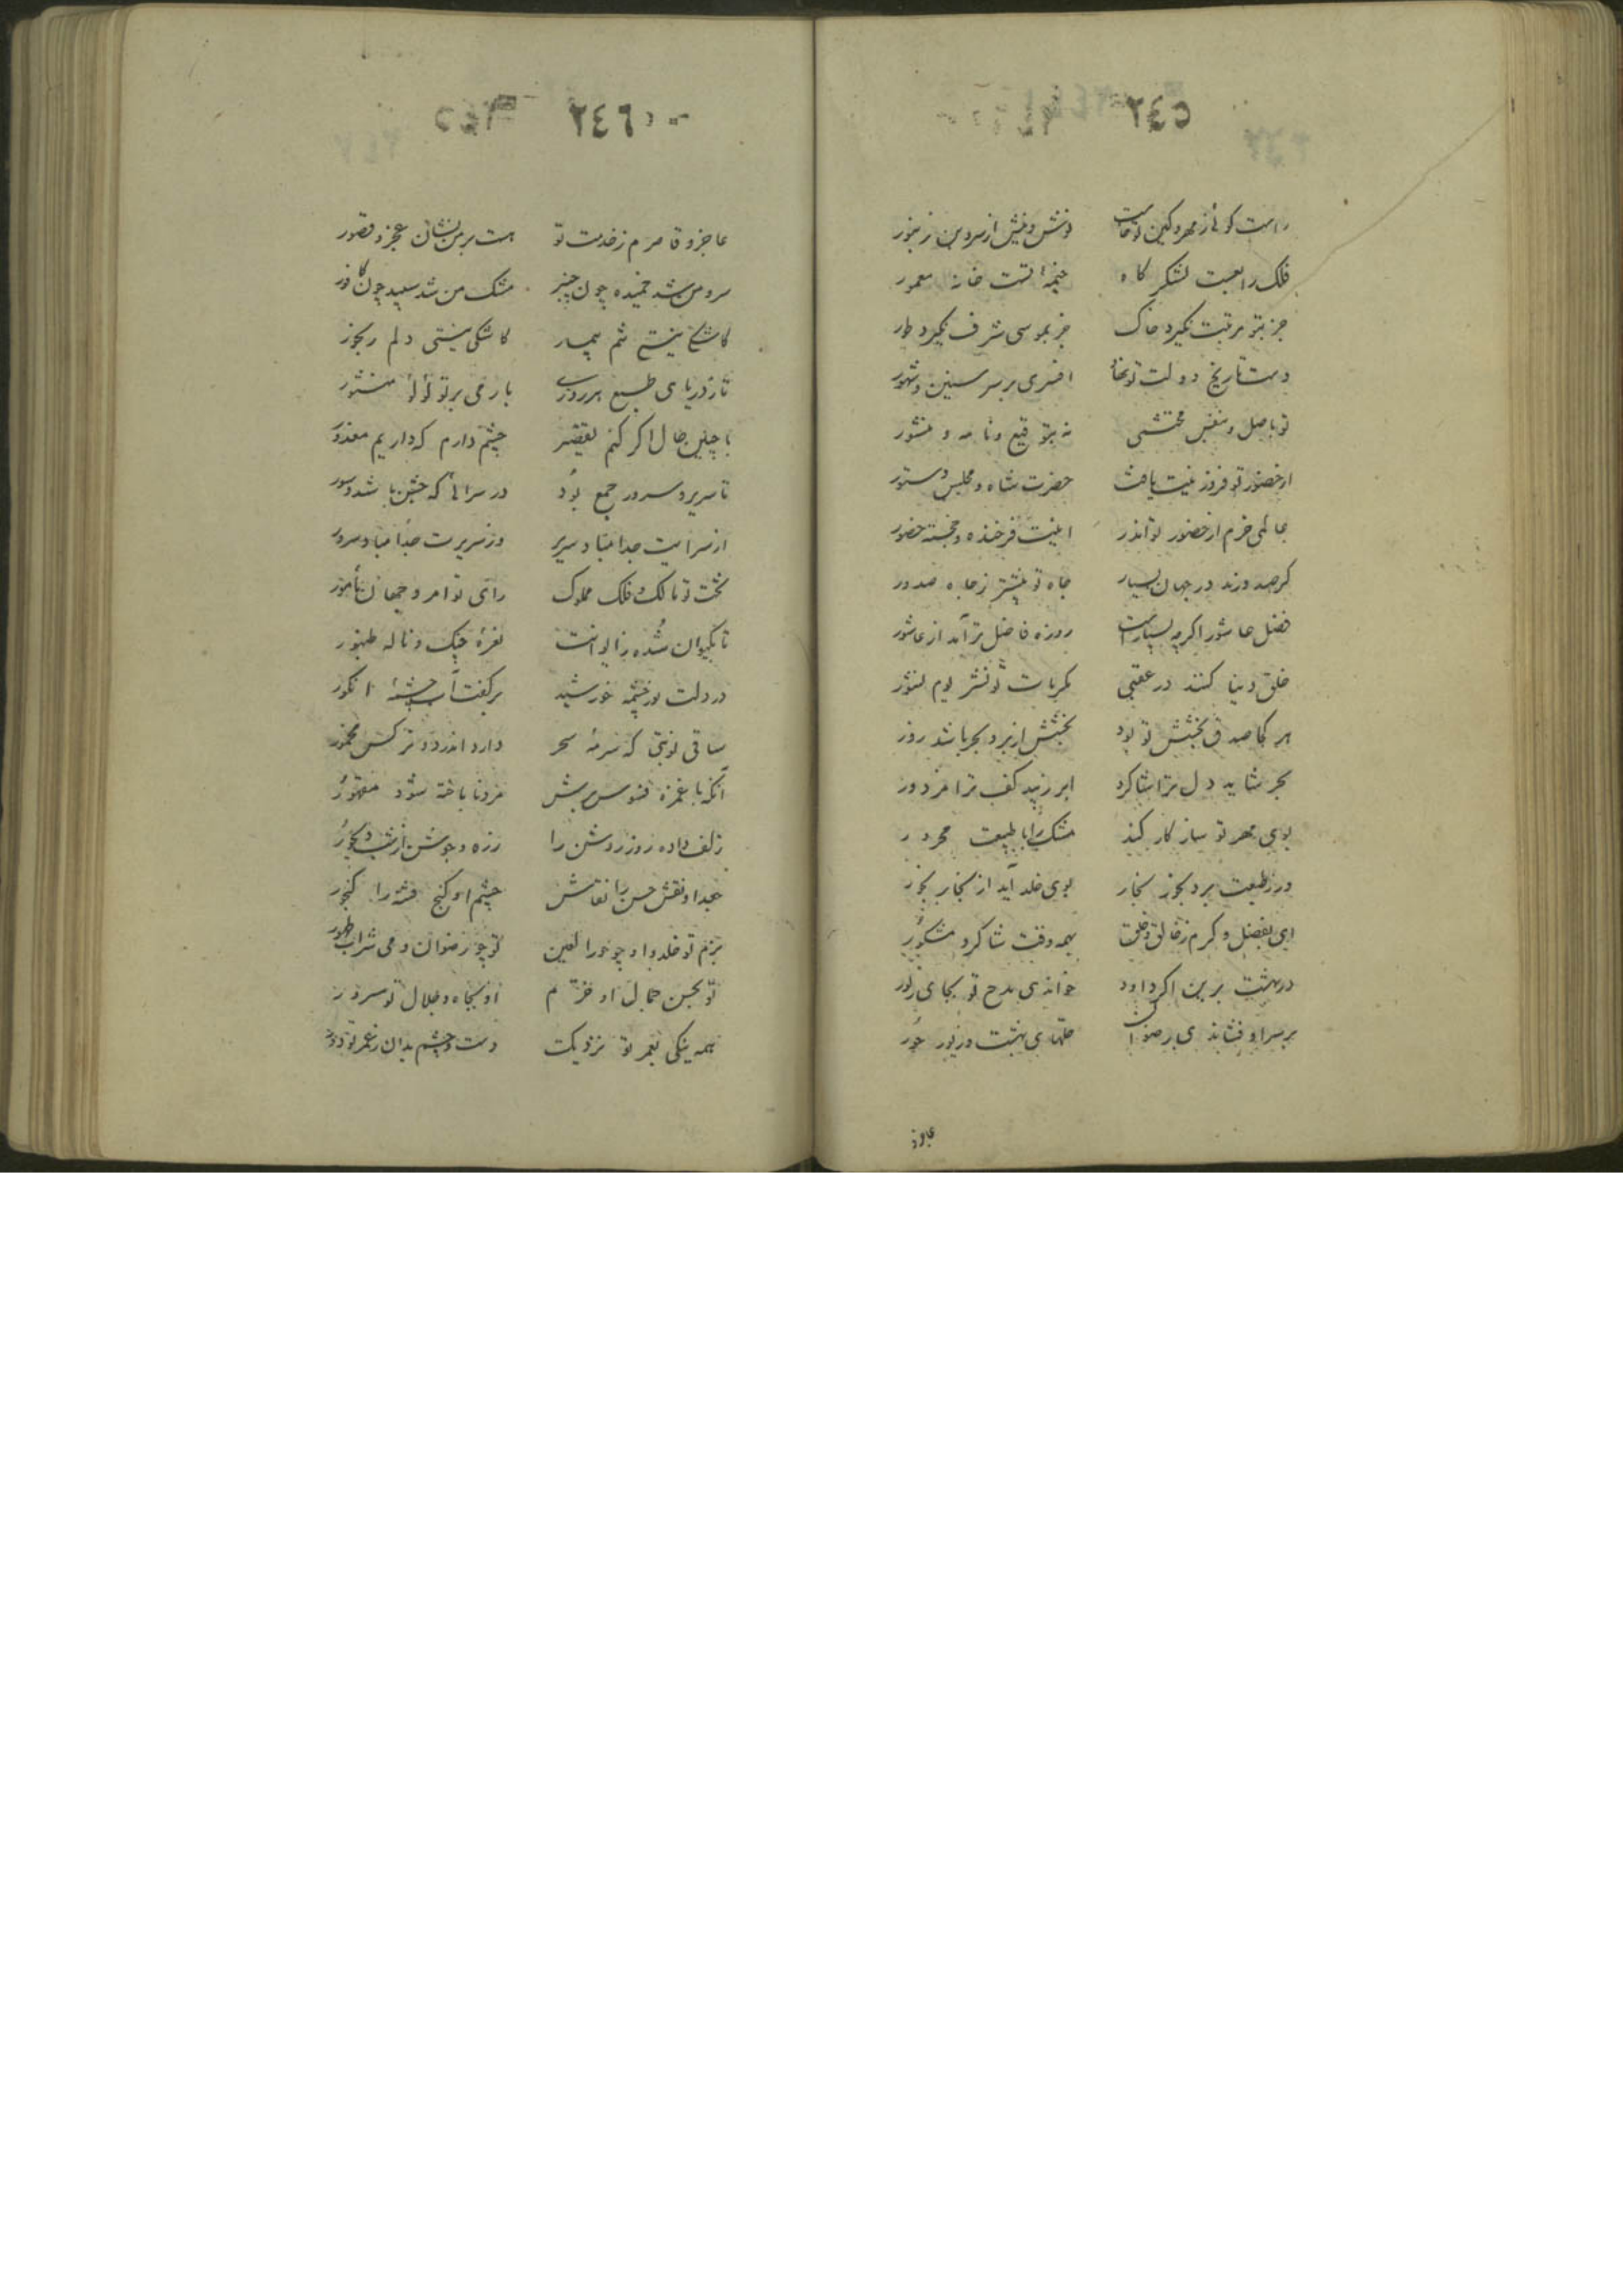 ٢٤٥
راست گوئی ز مهر و کین تو خاست
نوش و نیش از سروبن زنبور
فلک رابعت لشکر گاه
خیمهٔ تست خانهٔ معمور
جز بتو مرتبت نگیرد خاک
جز بموسی شرف نگیرد طور
دست تاریخ دولت تو نهاد
افسری بر سر سنین و شهور
تو باصل و بنفس محتشمی
نه بتوقیع و نامه و منشور
از حضور تو فر و زینت یافت
حضرت شاه و مجلس دستور
عالمی خرم از حضور تواند
اینت فرخنده و خجسته حضور
گر صدورند در جهان بسیار
جاه تو بیشتر ز جاه صدور
فضل عاشور اگرچه بسیار است
روزه فاضل تر آمد از عاشور
خلق دنیا کنند در عقبی
مکرمات تو نشر یوم نشور
هر کجا صدق بخشش تو بود
بخشش ابر و بحر باشد زور
بحر شاید دل ترا شاگرد
ابر زیبد کف ترا مزدور
بوی مهر تو سازگار کند
مشک را با طبیعت محرور
ور ز طبعت برد بخور بخار
بوی خلد آید از بخار بخور
ای بفضل و کرم ز خالق و خلق
همه وقت شاکر و مشکور
در بهشت برین اگر داود
خواندی مدح تو بجای زبور
بر سر او فشاندی رضوان
حلهای بهشت و زیور حور
عاجز
٢٤٦
عاجز و قاصرم ز خدمت تو
هست بر من نشان عجز و قصور
سرو من شد خمیده چون چنبر
مشک من شد سپید چون کافور
کاشکی نیستی تنم بیمار
کاشکی نیستی دلم رنجور
تا ز دریای طبع هر روزی
بارمی بر تو لؤلؤ منثور
با چنین حال اگر کنم تقصیر
چشم دارم که داریم معذور
تا سریر و سرور جمع بود
در سرائی که جشن باشد و سور
از سرایت جدا مباد سریر
وز سریرت جدا مباد سرور
بخت تو مالک و فلک مملوک
رای تو آمر و جهان مأمور
تا بکیوان شده ز ایوانت
نغمهٔ چنگ و نالهٔ طنبور
در دلت نور چشمه خورشید
بر کفت آب خوشهٔ انگور
ساقی نوبتی که سرمهٔ سحر
دارد اندر دو نرگس مخمور
آنکه با غمزه فسوسی‌بش
مرد ناباخته شود مقمور
زلف داده روز روشن را
زره و جوشن از شب دیجور
جعد او نقش حسن را نقاش
چشم او گنج فتنه را گنجور
بزم تو خلد و او چو حور العین
تو چو رضوان و می شراب طهور
تو بحسن جمال او خرم
او بجاه و جلال تو مسرور
همه نیکی بعمر تو نزدیک
دست و چشم بدان ز عمر تو دور